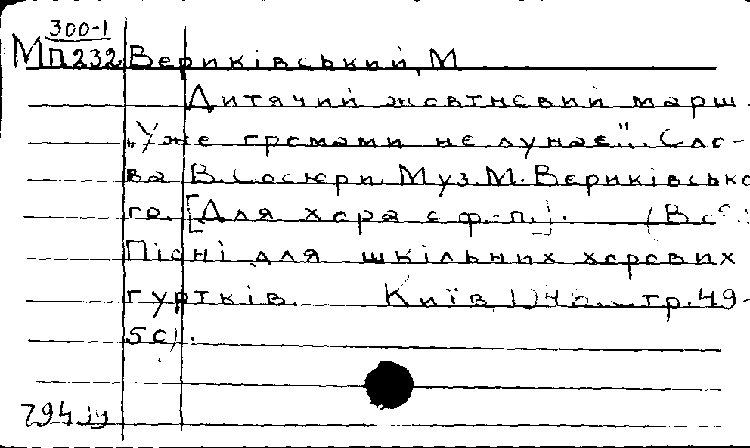 300-1
МП232 Вериківський, М
Дитячий жовтневий марш.
„Уже громами не лунає". Сло-
ва В. Сосюри. Муз. М. Вериківсько
го. [Для хора с ф.-п.]. (В сб.:
Пісні для шкільних хорових
гуртків. Київ, стр. 49-
50).